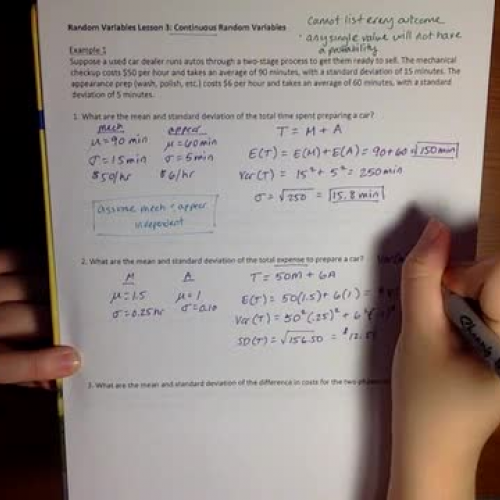 Random Variables Lesson 3: Continuous Random Variables
cannot list every outcome
· any single value will not have
a probability
Example 1
Suppose a used car dealer runs autos through a two-stage process to get them ready to sell. The mechanical
checkup costs $50 per hour and takes an average of 90 minutes, with a standard deviation of 15 minutes. The
appearance prep (wash, polish, etc.) costs $6 per hour and takes an average of 60 minutes, with a standard
deviation of 5 minutes.
1. What are the mean and standard deviation of the total time spent preparing a car?
mech appear
μ = 90 min μ = 60 min
σ = 15 min σ = 5 min
$50/hr $6/hr
T = M + A
E(T) = E(M) + E(A) = 90 + 60 = 150 min
Var(T) = 15² + 5² = 250 min
σ = √250 = 15.8 min
Assume mech + appear
independent
2. What are the mean and standard deviation of the total expense to prepare a car?
M A
μ = 1.5 μ = 1
σ = 0.25hr
T = 50M + 6A
E(T) = 50(1.5) + 6(1) = $
Var(T) = 50²(.25)² + 6²
SD(T) = √156.50 = $12.5
3. What are the mean and standard deviation of the difference in costs for the two